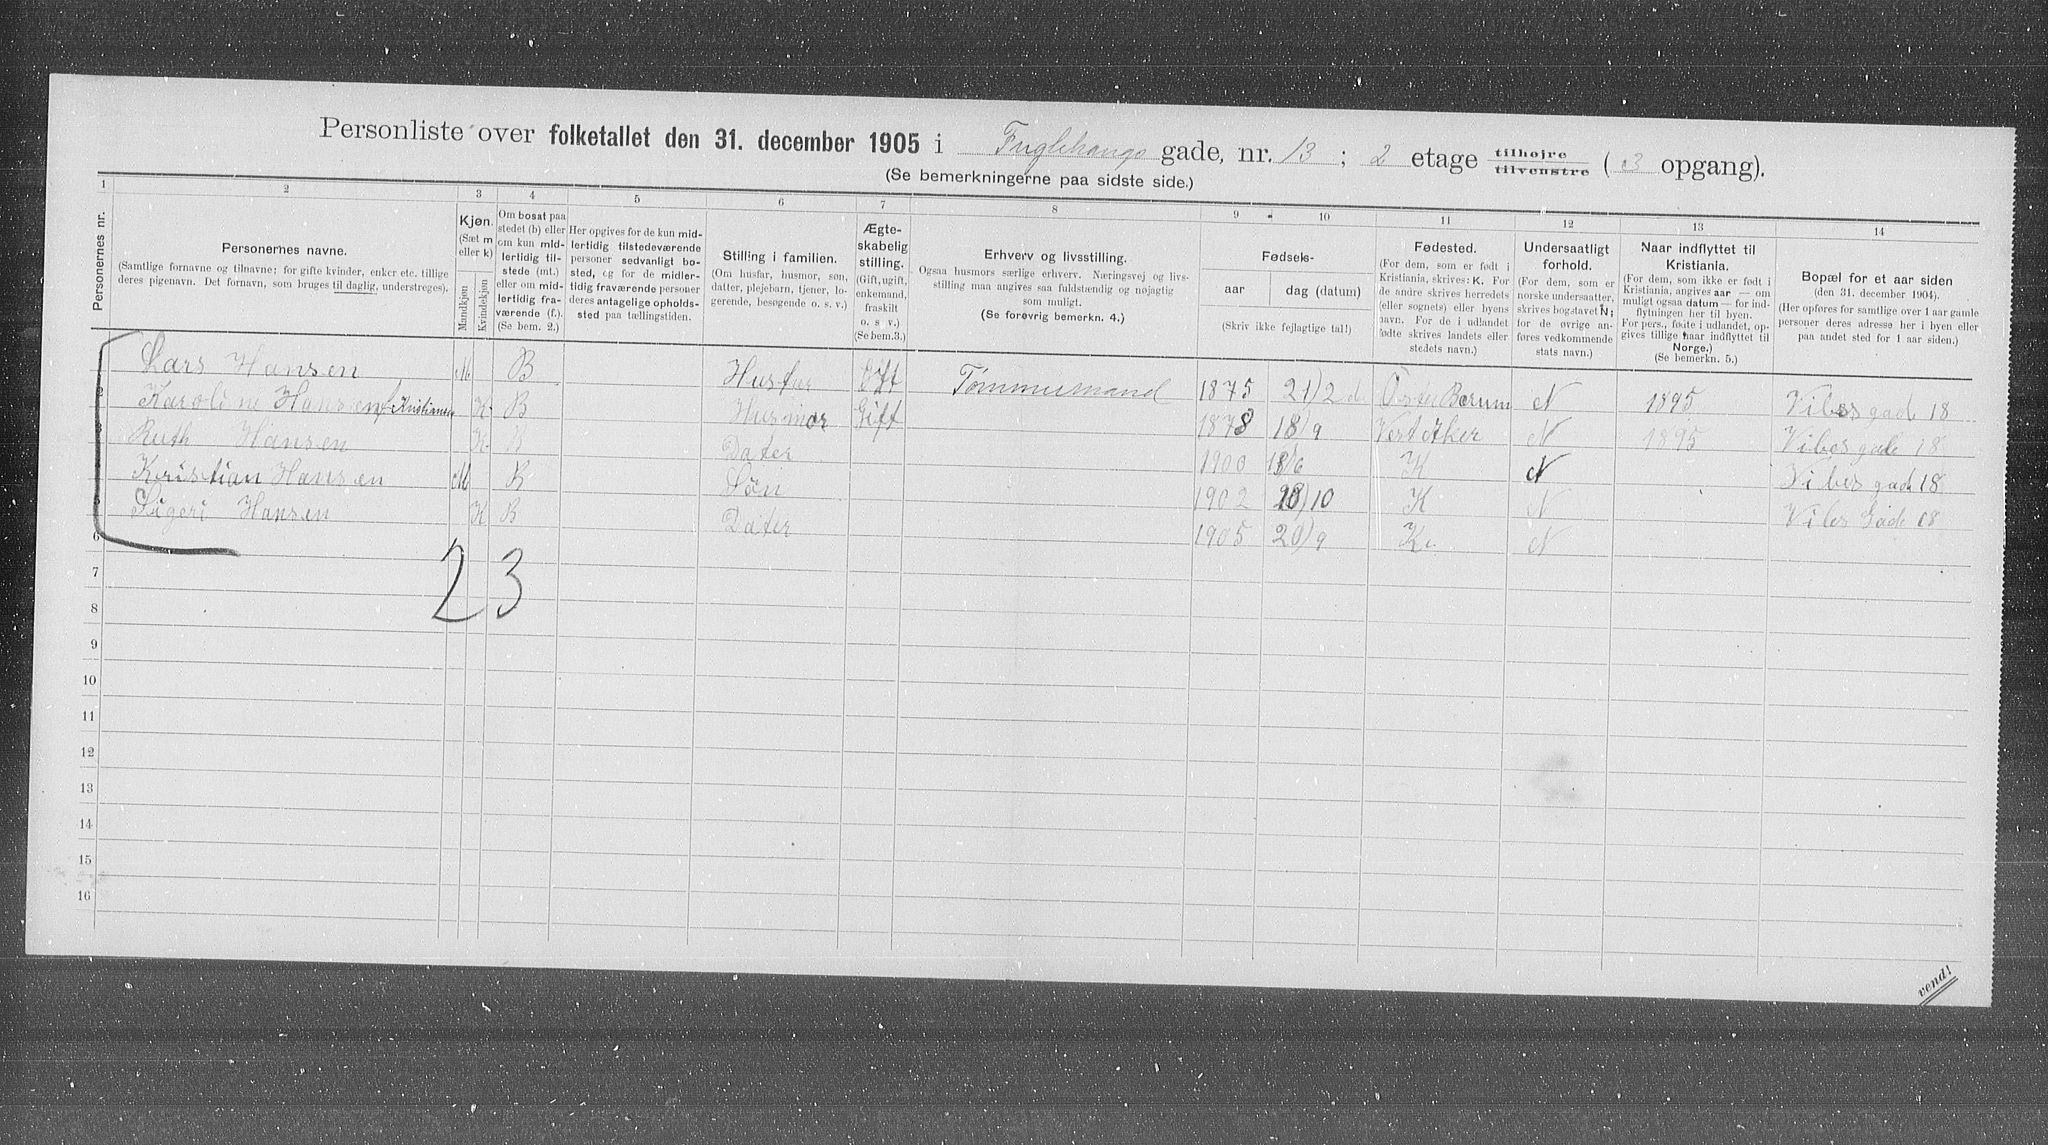 Personliste over folketallet den 31. december 1905 i Fuglehaugs gade, nr. 13 ; 2 etage tilhøjre tilvenstre ( 3 opgang).
(Se bemerkningerne paa sidste side.)
1 2 3 4 5 6 7 8 9 10 11 12 13 14
Personernes nr.
Personernes navne.
(Samtlige fornavne og tilnavne; for gifte kvinder, enker etc. tillige
deres pigenavn. Det fornavn, som bruges til daglig, understreges).
Kjøn.
(Sæt m
eller k)
Mandkjøn
Kvindekjøn
Om bosat paa
stedet (b) eller
om kun mid-
lertidig til-
stede (mt.)
eller om mid-
lertidig fra-
værende (f.).
(Se bem. 2.)
Her opgives for de kun mid-
lertidig tilstedeværende
personer sedvanligt bo-
sted, og for de midler-
tidig fraværende personer
deres antagelige opholds-
sted paa tællingstiden.
Stilling i familien.
(Om husfar, husmor, søn,
datter, plejebarn, tjener, lo-
gerende, besøgende o. s. v.)
Ægte-
skabelig
stilling.
(Gift, ugift,
enkemand,
fraskilt
o. s v.)
(Se bem.3.)
Erhverv og livsstilling.
Ogsaa husmors særlige erhverv. Næringsvej og livs-
stilling maa angives saa fuldstændig og nøjagtig
som muligt.
(Se forøvrig bemerkn. 4.)
Fødsels-
aar
dag (datum)
(Skriv ikke fejlagtige tal!)
Fødested.
(For dem, som er født i
Kristiania, skrives: K. For
de andre skrives herredets
(eller sognets) eller byens
navn. For de i udlandet
fødte skrives landets eller
stedets navn.)
Undersaatligt
forhold.
(For dem, som er
norske undersaatter,
skrives bogstavet N;
for de øvrige an-
føres vedkommende
stats navn.)
Naar indflyttet til
Kristiania.
(For dem, som ikke er født i
Kristiania, angives aar — om
muligt ogsaa datum — for ind-
flytningen her til byen.
For pers., fødte i udlandet, op-
gives tillige naar indflyttet til
Norge.)
(Se bemerkn. 5.)
Bopæl for et aar siden
(den 31. december 1904).
(Her opføres for samtlige over 1 aar gamle
personer deres adresse her i byen eller
paa andet sted for 1 aar siden.)
Lars Hansen M B Husfar Gift Tømmermand 1875 21/2 Øster Berum N 1895 Vibesgade 18
2 Karoline Hansen f Kristiansen K B Husmor Gift 1878 18/9 Vest Aker N 1895 Vibesgade 18
Ruth Hansen K B Dater 1900 18/6 K N Vibesgade 18
Kristian Hansen M B Søn 1902 /10 K N Vibes Gade 18
5 Sigeri Hansen K B Dater 1905 20/9 K. N
6
2 3
7
8
9
10
11
12
13
14
15
16
vend!